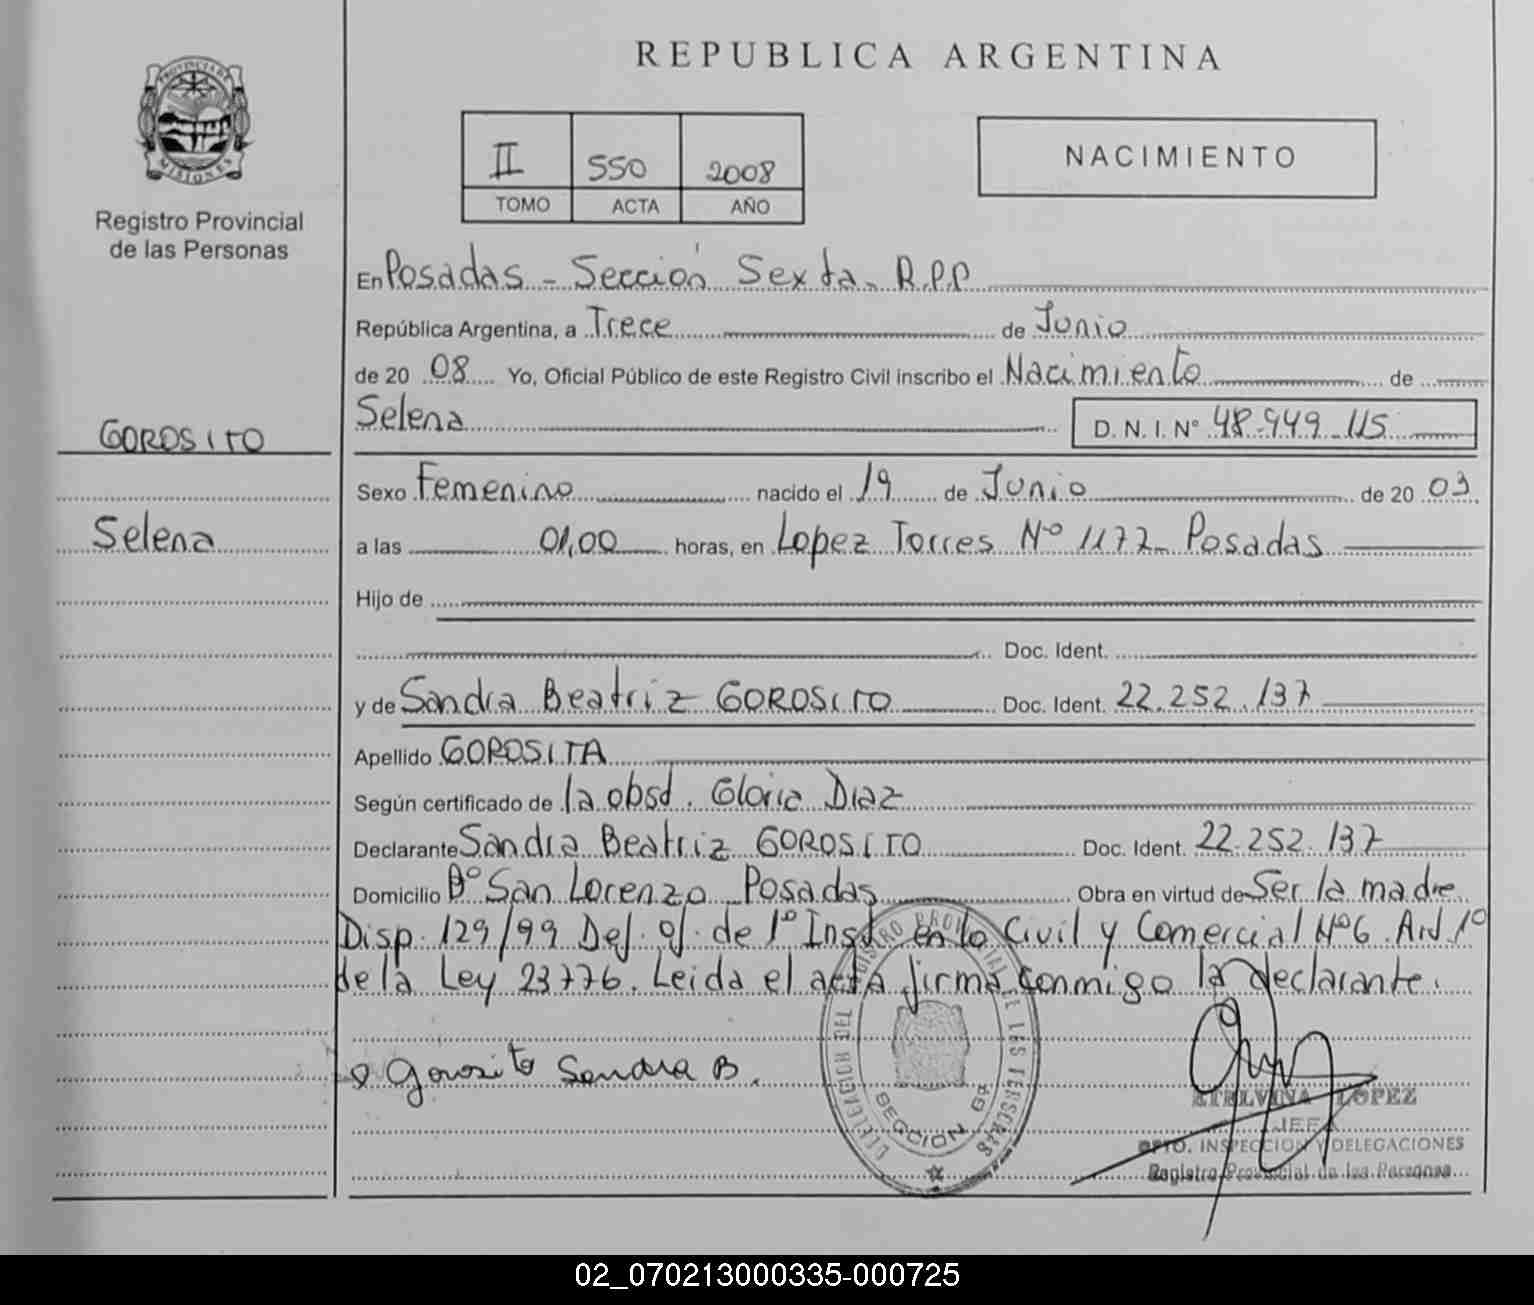 REPUBLICA ARGENTINA
PROVINCIA DE
MISIONES
Registro Provincial
de las Personas
II 550 2008
TOMO ACTA AÑO
NACIMIENTO
En Posadas - Sección Sexta - R.P.P
República Argentina, a Trece de Junio
de 20 08 Yo, Oficial Público de este Registro Civil inscribo el Nacimiento de
Selena D. N. I. N° 48.949.115
GOROSITO
Sexo Femenino nacido el 19 de Junio de 20 03
Selena
a las 01,00 horas, en Lopez Torres Nº 1177 - Posadas
Hijo de
Doc. Ident.
y de Sandra Beatriz GOROSITO Doc. Ident. 22.252.137
Apellido GOROSITA
Según certificado de la obst. Gloria Diaz
Declarante Sandra Beatriz GOROSITO Doc. Ident. 22.252.137
Domicilio Bº San Lorenzo - Posadas Obra en virtud de Ser la madre
Disp. 129/99 Def. of. de 1º Inst. en lo Civil y Comercial Nº6. Art. 1º
de la Ley 23776. Leida el acta firma conmigo la declarante.
Gorosito Sandra B.
DELEGACION DEL REGISTRO PROVINCIAL DE LAS PERSONAS
SECCION 6ª
ETELVINA LOPEZ
JEFA
DPTO. INSPECCION Y DELEGACIONES
Registro Provincial de las Personas
02_070213000335-000725